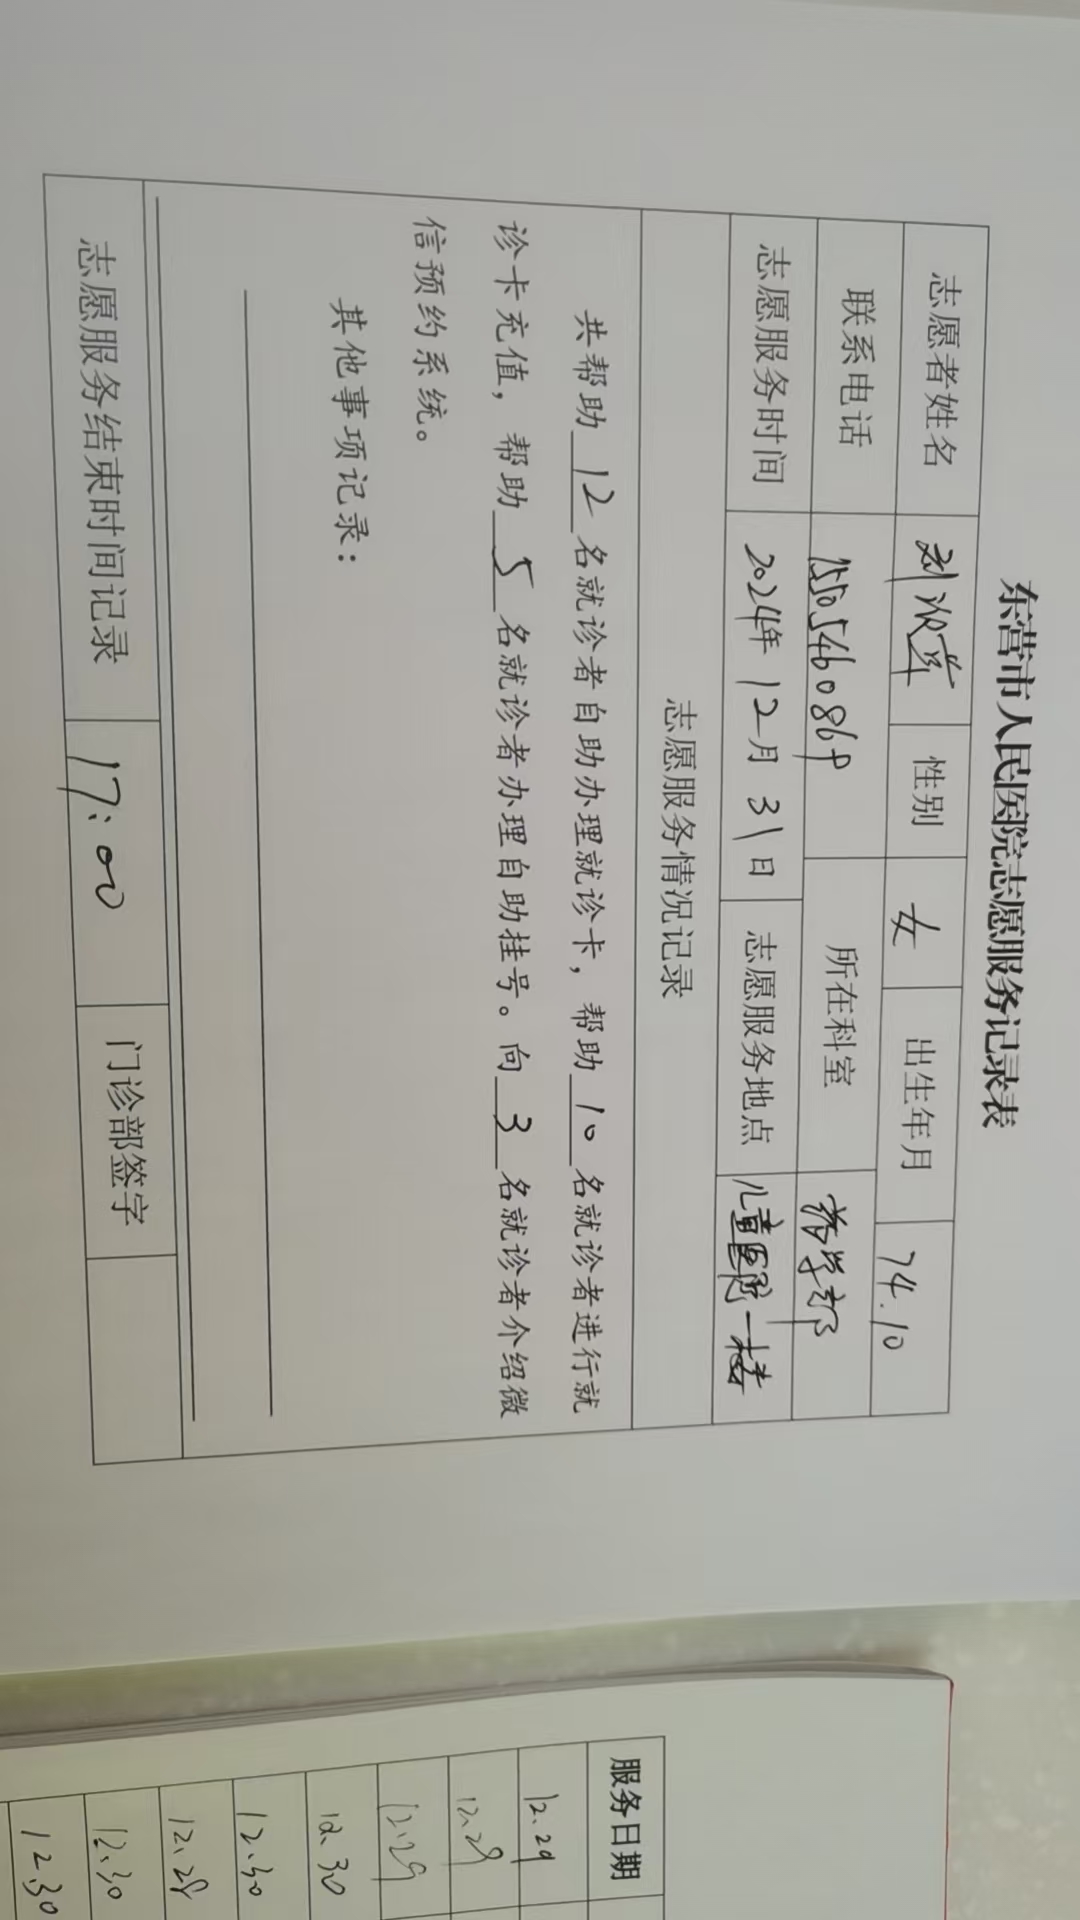 东营市人民医院志愿服务记录表
志愿者姓名 刘淑苹 性别 女 出生年月 74.10
联系电话 15505460869 所在科室 药学部
志愿服务时间 2024年 12月 31日 志愿服务地点 儿童医院一楼
志愿服务情况记录
共帮助 12 名就诊者自助办理就诊卡，帮助 10 名就诊者进行就
诊卡充值，帮助 5 名就诊者办理自助挂号。向 3 名就诊者介绍微
信预约系统。
其他事项记录：
志愿服务结束时间记录 17:00 门诊部签字
服务日期
12.29
12.29
12.29
12.30
12.30
12.29
12.30
12.30